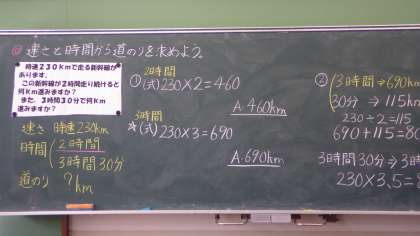 速さと時間から道のりを求めよう
時速230kmで走る新幹線が
あります。
この新幹線が2時間走り続けると
何km進みますか?
また、3時間30分で何km
進みますか?
速さ 時速230km
時間 2時間
3時間30分
道のり ?km
2時間
① (式) 230×2=460
A.460km
3時間
☆(式) 230×3=690
A.690km
② 3時間⇒690km
30分 ⇒ 115k
230÷2=115
690+115=80
3時間30分⇒3
230×3.5=